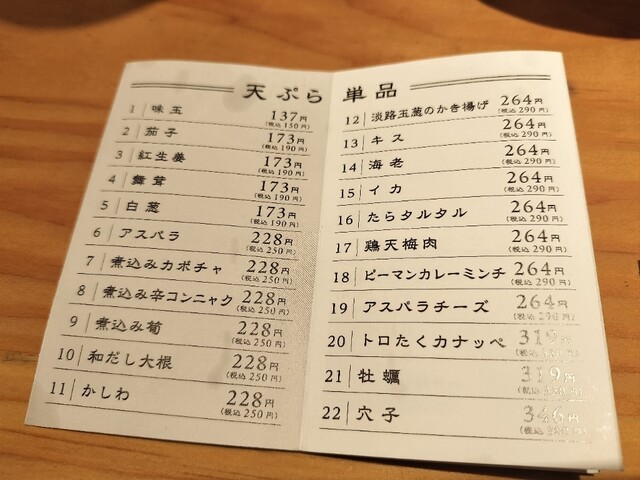 天ぷら 単品
1 味玉 137円
(税込150円)
2 茄子 173円
(税込190円)
3 紅生姜 173円
(税込190円)
4 舞茸 173円
(税込190円)
5 白葱 173円
(税込190円)
6 アスパラ 228円
(税込250円)
7 煮込みカボチャ 228円
(税込250円)
8 煮込み辛コンニャク 228円
(税込250円)
9 煮込み筍 228円
(税込250円)
10 和だし大根 228円
(税込250円)
11 かしわ 228円
(税込250円)
12 淡路玉葱のかき揚げ 264円
(税込290円)
13 キス 264円
(税込290円)
14 海老 264円
(税込290円)
15 イカ 264円
(税込290円)
16 たらタルタル 264円
(税込290円)
17 鶏天梅肉 264円
(税込290円)
18 ピーマンカレーミンチ 264円
(税込290円)
19 アスパラチーズ 264円
(税込290円)
20 トロたくカナッペ 319円
21 牡蠣 319円
22 穴子 346円